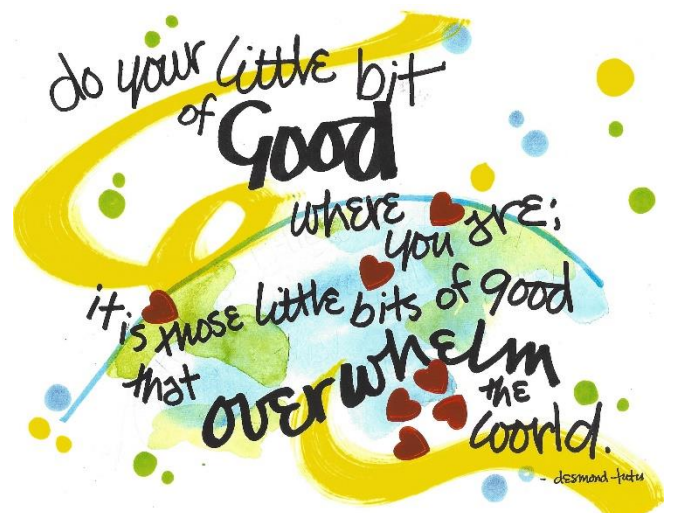 do your little bit
of Good
where you are;
it is those little bits of good
that overwhelm the
world.
- desmond tutu